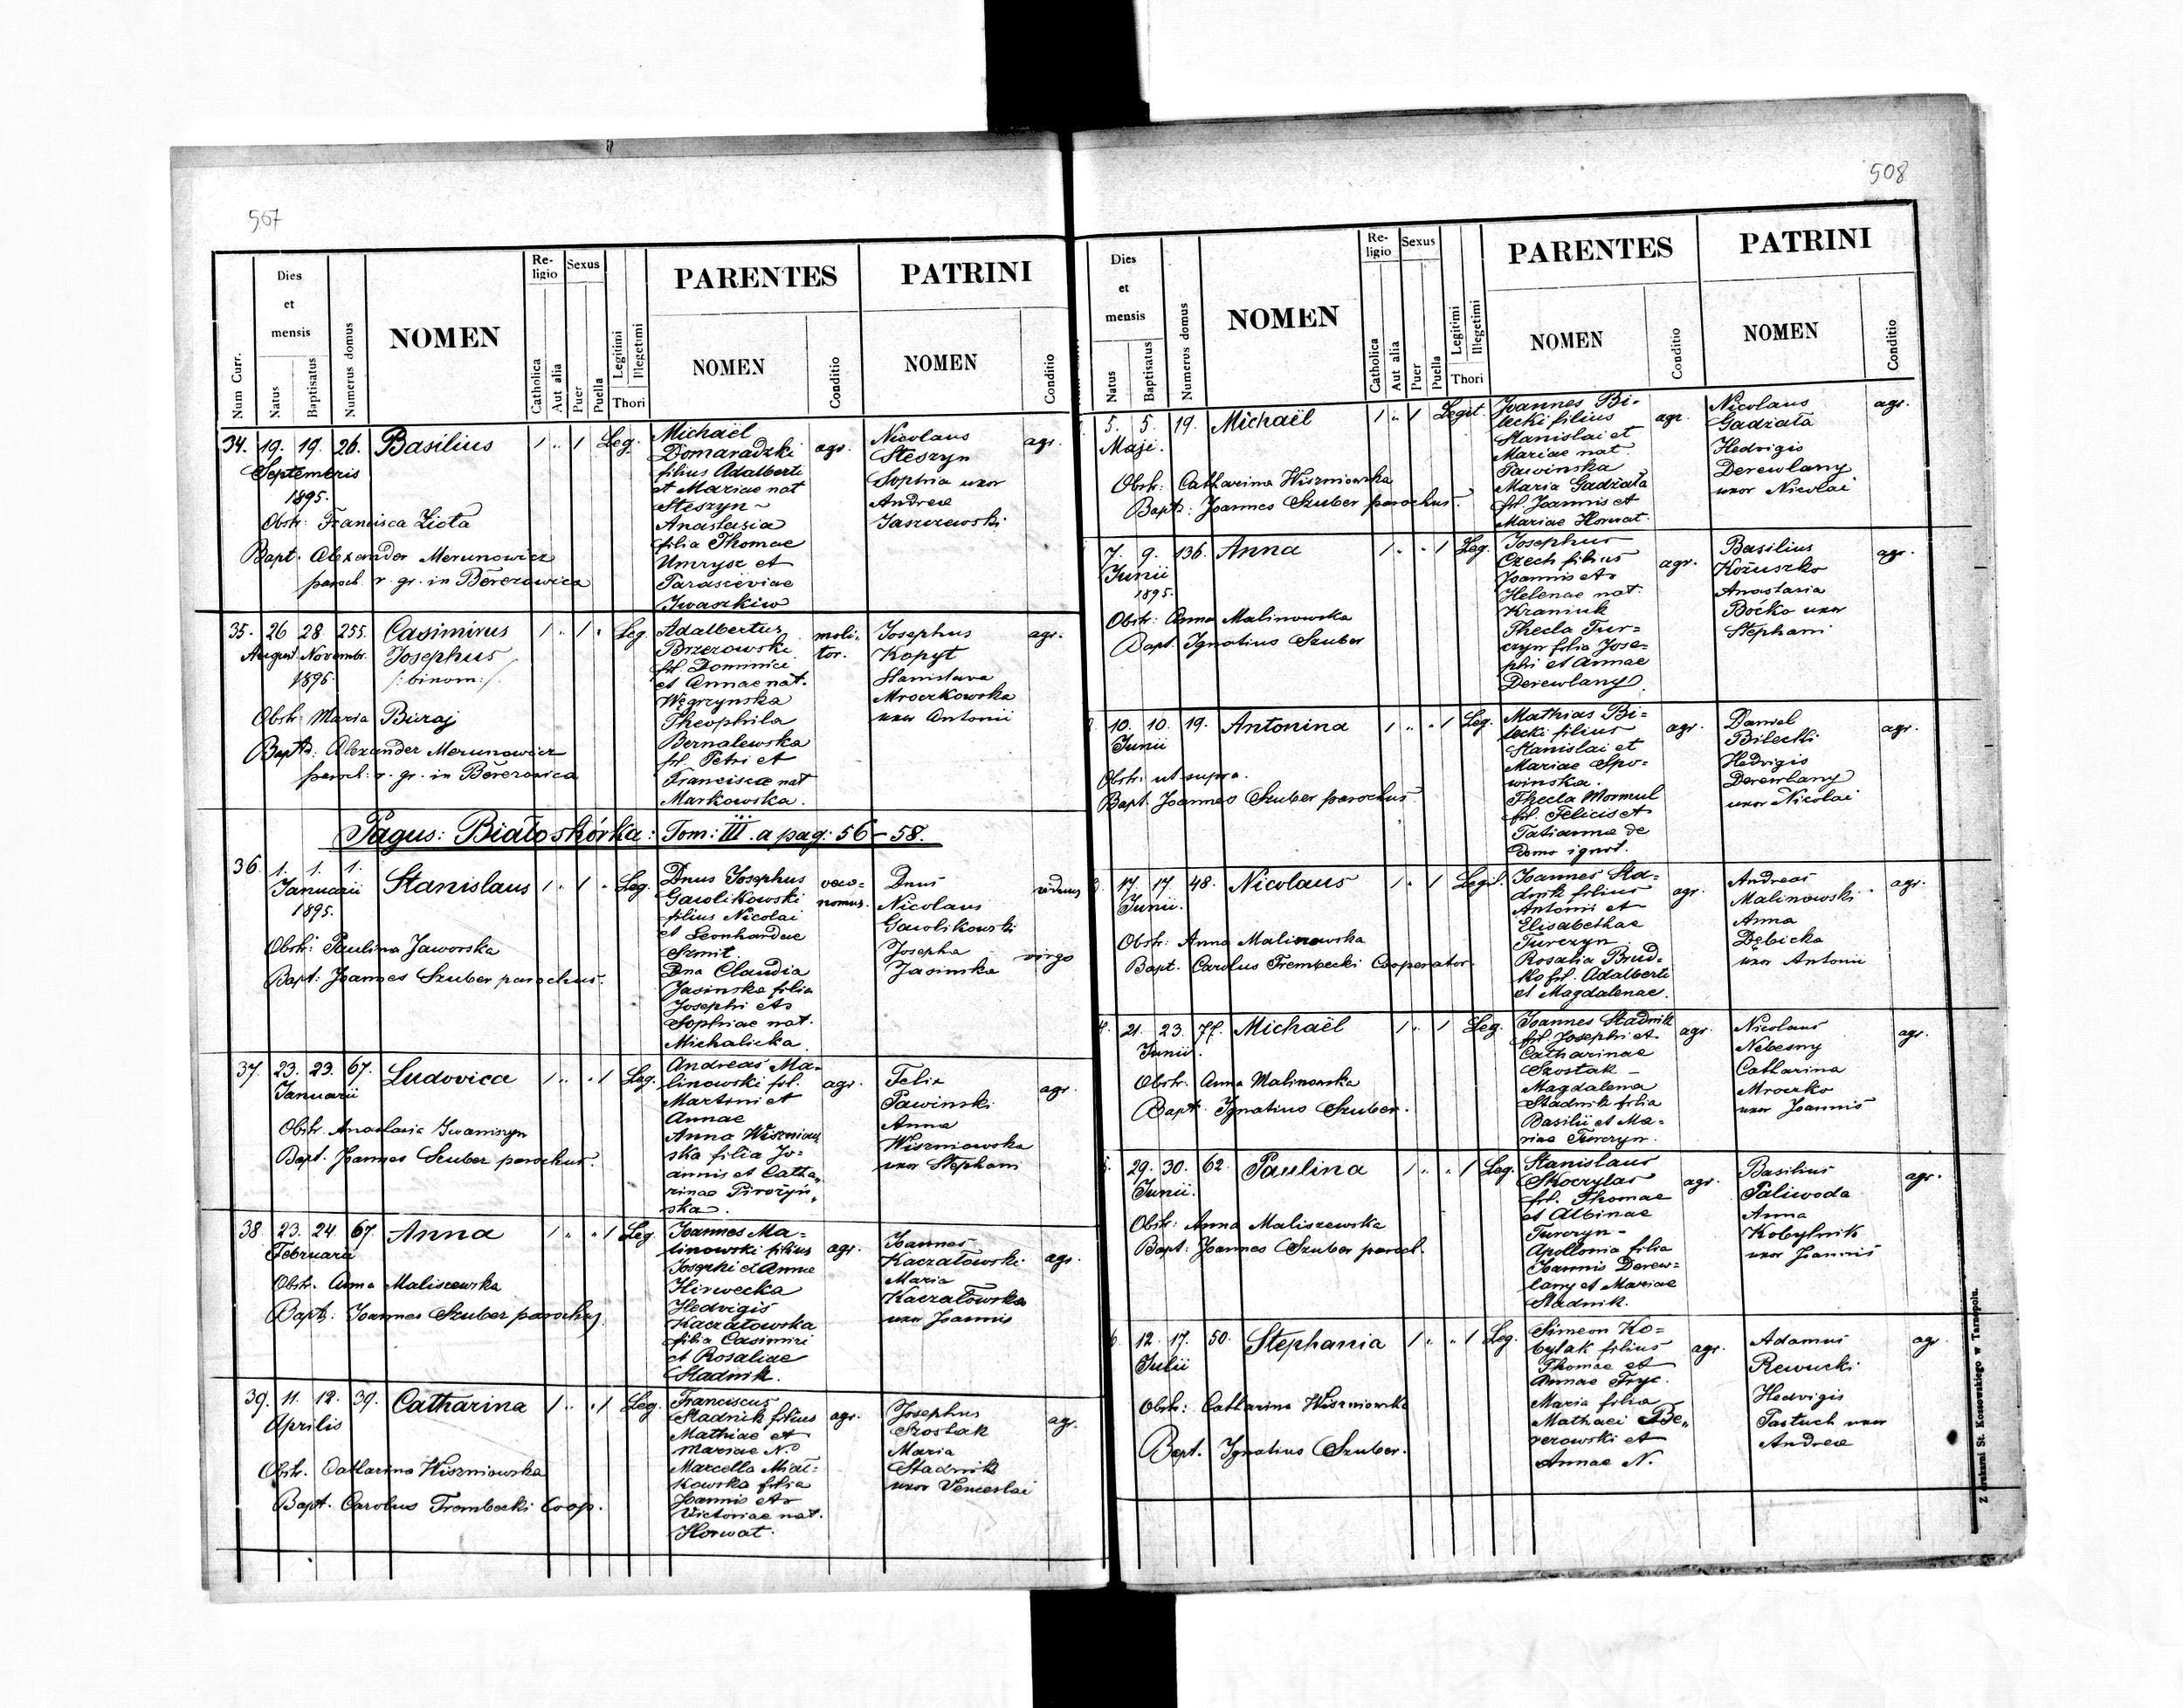 507
Num Curr.
Dies et mensis
Natus
Baptisatus
Numerus domus
NOMEN
Religio
Catholica
Aut alia
Sexus
Puer
Puella
Legitimi
Illegetimi
Thori
PARENTES
NOMEN
Conditio
PATRINI
NOMEN
Conditio
34. 19. 19. 26. Basilius 1 " 1 Leg.
Septembris
1895.
Obstr: Francisca Ziota
Bapt. Alexander Merunowicz
paroch r. gr. in Berezowica
Michaël
Domaradzki
filius Adalberti
et Mariae nat
Steszyn ~
Anastasia
filia Thomae
Umrysz et
Parasceviae
Iwaszkiw
agr.
Nicolaus
Steszyn
Sophia uxor
Andreae
Jaszczewski
agr.
35. 26 28 255. Casimirus 1 " 1 " Leg.
August. Novembr. Josephus
1895. /: binom :/
Obstr: Maria Buraj
Bapt: Alexander Merunowicz
paroch: r. gr. in Berezovica
Adalbertus
Brzezowski
fil. Dominici
et Annae nat.
Węgrzynska
Theophila
Bernalewska
fil. Petri et
Franciscae nat
Markowska.
moli-
tor.
Josephus
Kopyt
Stanislava
Mroczkowska
uxor Antonii
agr.
Pagus: Białoskórka: Tom: III. a pag: 56 – 58.
36 1. 1. 1. Stanislaus 1 " 1 " Leg.
Januarii
1895.
Obstr: Paulina Jaworska
Bapt: Joannes Szuber parochus.
Dnus Josephus
Gawlikowski
filius Nicolai
et Leonhardae
Szmit.
Dna Claudia
Jasinska filia
Josephi et
Sophiae nat.
Michalicka.
oeco-
nomus.
Dnus
Nicolaus
Gawlikowski
Josepha
Jasinska
viduus
virgo
37. 23. 23. 67. Ludovica 1 " " 1 Leg.
Januarii
Obstr. Anastasia Iwaniszyn
Bapt. Joannes Szuber parochus.
Andreas Ma-
linowski fil.
Martini et
Annae
Anna Wiszniow-
ska filia Jo-
annis et Catha-
rinae Pirożyń-
ska.
agr.
Felix
Pawinski
Anna
Wiszniowska
uxor Stephani
agr.
38. 23. 24. 67. Anna 1 " " 1 Leg.
Februarii
Obstr. Anna Maliszewska
Bapt: Joannes Szuber parochus.
Joannes Ma-
linowski filius
Josephi et Annae
Hirwecka
Hedvigis
Kaczałowska
filia Casimiri
et Rosaliae
Stadnik.
agr.
Joannes
Kaczałowski
Maria
Kaczałowska
uxor Joannis
agr.
39. 11. 12. 39. Catharina 1 " " 1 Leg.
Aprilis
Obstr. Catharina Wiszniowska
Bapt. Carolus Trembecki Coop.
Franciscus
Stadnik filius
Mathiae et
Mariae N.
Marcella Miał-
kowska filia
Joannis et
Victoriae nat.
Horwat.
agr.
Josephus
Szostak
Maria
Stadnik
uxor Venceslai
agr.
508
Dies et mensis
Natus
Baptisatus
Numerus domus
NOMEN
Religio
Catholica
Aut alia
Sexus
Puer
Puella
Legitimi
Illegetimi
Thori
PARENTES
NOMEN
Conditio
PATRINI
NOMEN
Conditio
5. 5. 19. Michaël 1 " 1 Legit.
Maji.
Obstr: Catharina Wiszniowska
Bapt: Joannes Szuber parochus.
Joannes Bi-
lecki filius
Stanislai et
Mariae nat
Pawinska
Maria Gadzała
fil. Joannis et
Mariae Horwat.
agr.
Nicolaus
Gadzała
Hedvigis
Derewlany
uxor Nicolai
agr.
7. 9. 136. Anna 1 " " 1 Leg.
Junii
1895.
Obstr: Anna Malinowska
Bapt. Ignatius Szuber
Josephus
Czech filius
Joannis et
Helenae nat.
Kraniuk
Thecla Tur-
czyn filia Jose-
phi et Annae
Derewlany.
agr.
Basilius
Kożuszko
Anastasia
Boćko uxor
Stephani
agr.
10. 10. 19. Antonina 1 " " 1 Leg.
Junii
Obstr: ut supra.
Bapt. Joannes Szuber parochus.
Mathias Bi-
lecki filius
Stanislai et
Mariae Spo-
winska.
Thecla Mormul
fil. Felicis et
Tatianna de
domo ignot.
agr.
Daniel
Bilecki
Hedvigis
Derewlany
uxor Nicolai
agr.
17. 17. 48. Nicolaus 1 " 1 Legit.
Junii.
Obstr: Anna Malinowska
Bapt. Carolus Trembecki Cooperator
Joannes Sta-
dnik filius
Antonii et
Elisabethae
Turczyn
Rosalia Brud-
ko fil. Adalberti
et Magdalenae.
agr.
Andreas
Malinowski
Anna
Dębicka
uxor Antonii
agr.
21. 23. 77. Michaël 1 " 1 Leg.
Junii.
Obstr: Anna Malinowska
Bapt. Ignatius Szuber.
Joannes Stadnik
fil. Josephi et
Catharinae
Szostak –
Magdalena
Stadnik filia
Basilii et Ma-
riae Turczyn.
agr.
Nicolaus
Nebesny
Catharina
Mroczko
uxor Joannis
agr.
29. 30. 62. Paulina 1 " " 1 Leg.
Junii.
Obstr: Anna Maliszewska
Bapt: Joannes Szuber paroch.
Stanislaus
Skoczylas
fil. Thomae
et Albinae
Turczyn –
Apollonia filia
Joannis Derew-
lany et Mariae
Stadnik.
agr.
Basilius
Paliwoda
Anna
Kobylnik
uxor Joannis
agr.
12. 17. 50. Stephania 1 " " 1 Leg.
Julii
Obstr: Catharina Wiszniowska
Bapt. Ignatius Szuber.
Simeon Ko-
bylak filius
Thomae et
Annae Fryc.
Maria filia
Mathaei Be-
rezowski et
Annae N.
agr.
Adamus
Rewucki
Hedvigis
Pastuch uxor
Andreae
agr.
Z drukarni St. Kossowskiego w Tarnopolu.